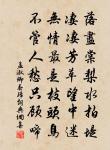 落盡棠梨水拍堤
淒淒芳草望中迷
無情最是枝頭鳥
不管人愁只顧啼
孟淑卿春歸詞典網書